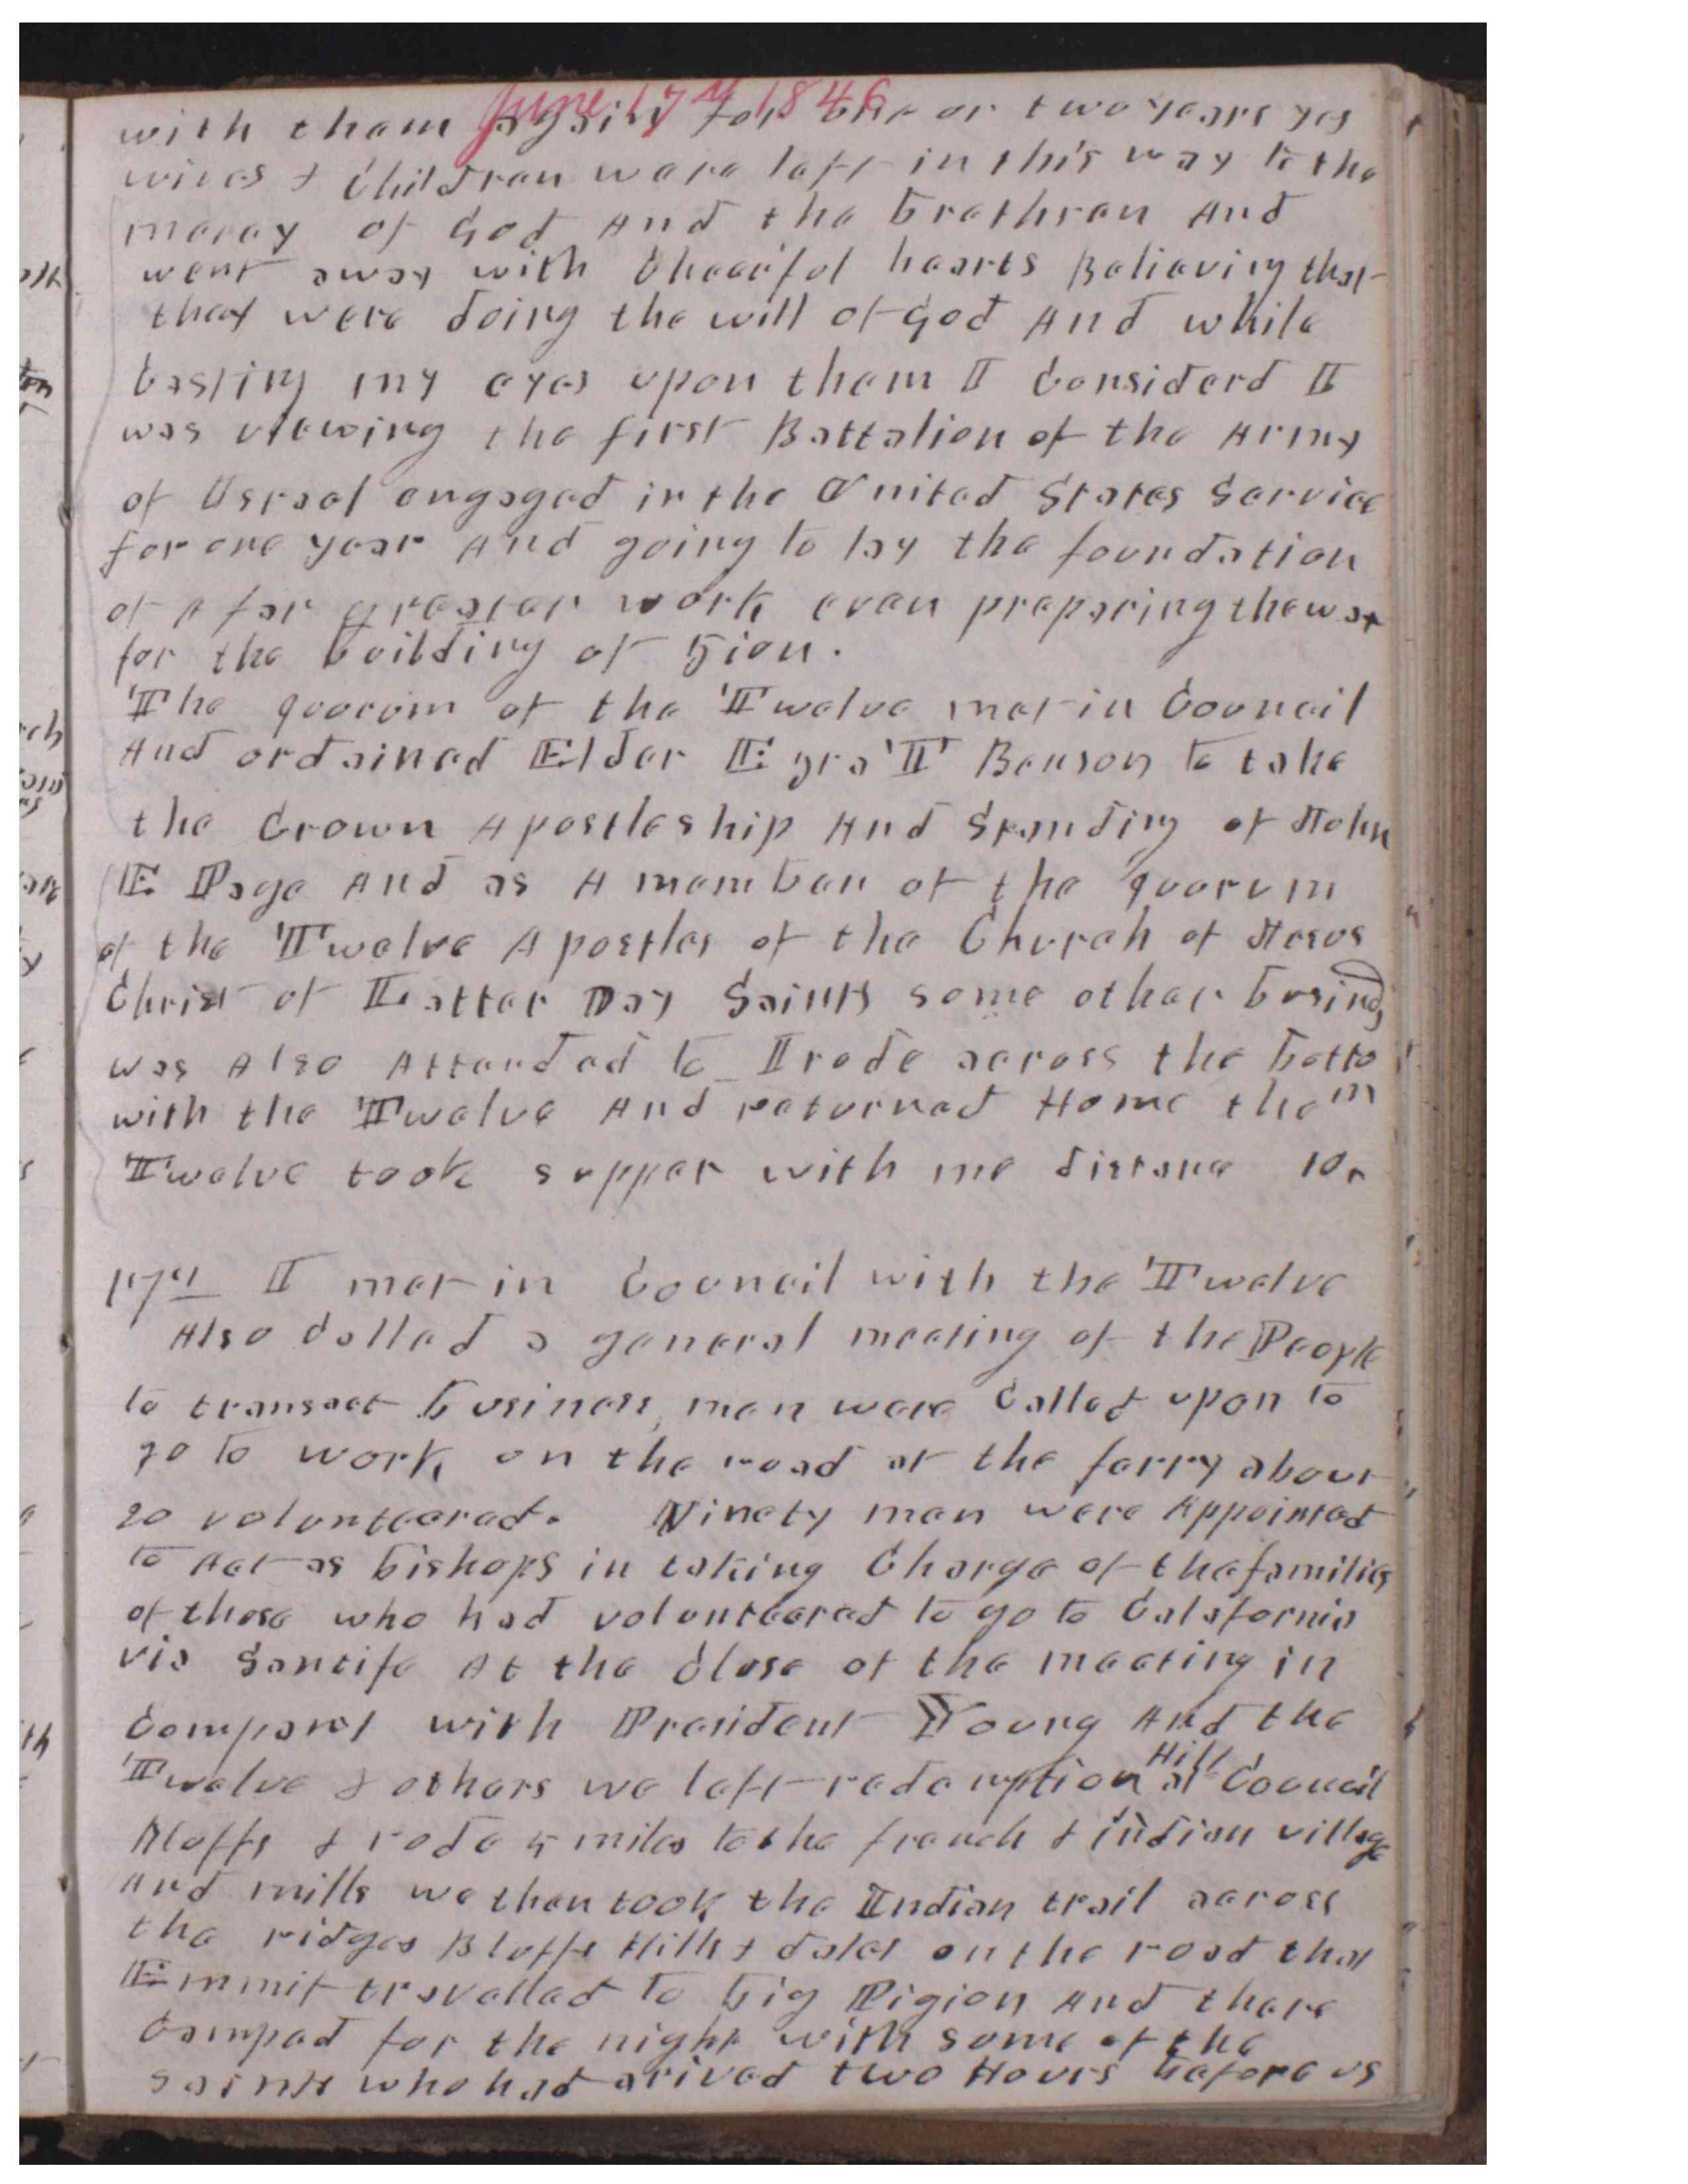 June 17th 1846
with them again for one or two years yes
wives & Children were left in this way to the
mercy of God And the brethren And
went away with Cheerful hearts Believing that
they were doing the will of God And while
Casting my eyes upon them I Considerd I
was viewing the first Battalion of the Army
of Israel engaged in the United States Service
for one year And going to lay the foundation
of A far greater work even preparing the way
for the building of Zion.
The quorum of the Twelve met in Council
And ordained Elder Ezra T Benson to take
the Crown Apostleship And Standing of John
E Page And as A member of the quorum
of the Twelve Apostles of the Church of Jesus
Christ of Latter Day Saints some other business
was Also Attended to I rode across the botto
with the Twelve And returned Home the m
Twelve took supper with me distance 10.
17th I met in Council with the Twelve
Also Called a general meeting of the People
to transact business, men were Called upon to
go to work on the road at the ferry about
20 volunteered. Ninety men were Appointed
to Act as bishops in taking Charge of the families
of those who had volunteered to go to Calafornia
via Santife At the Close of the meeting in
Company with President Young And the
Twelve & others we left redemption Hill at Council
Bluffs & rode 4 miles to the french & indian village
And mills we then took the Indian trail across
the ridges Bluffs Hills & dales on the road that
Emmit travelled to big Pigion And there
Camped for the night with some of the
saints who had arived two Hours before us